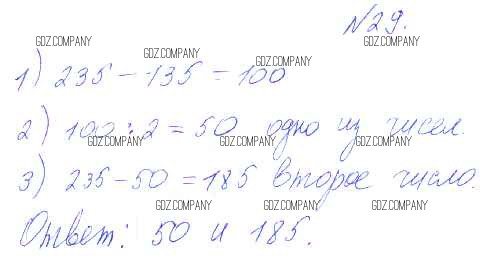 №29.
GDZ.COMPANY GDZ.COMPANY GDZ.COMPANY GDZ.COMPANY
1) 235 - 135 = 100
2) 100 : 2 = 50 одно из чисел.
GDZ.COMPANY GDZ.COMPANY GDZ.COMPANY
3) 235 - 50 = 185 второе число.
GDZ.COMPANY GDZ.COMPANY GDZ.COMPANY
Ответ: 50 и 185.
GDZ.COMPANY